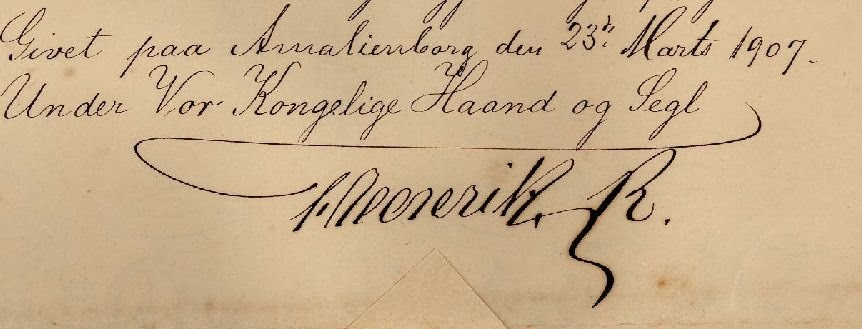 Givet paa Amalienborg den 23de Marts 1907.
Under Vor Kongelige Haand og Segl
Frederik R.